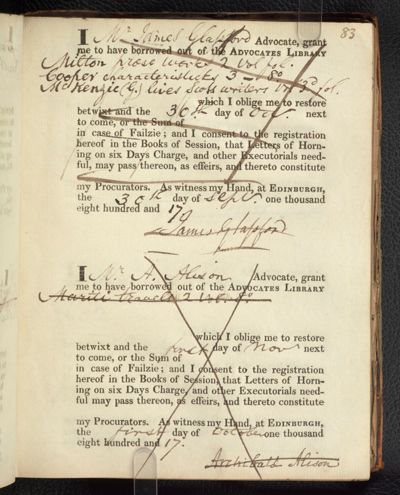 83
I Mr James Glassford Advocate, grant
me to have borrowed out of the ADVOCATES LIBRARY
Milton prose works 2 vol fol.
Cooper characteristicks 3 - 8o
McKenzie (G) lives Scots writers 3d fol.
which I oblige me to restore
betwixt and the 30th day of Octr. next
to come, or the Sum of
in case of Failzie; and I consent to the registration
hereof in the Books of Session, that Letters of Horn-
ing on six Days Charge, and other Executorials need-
ful, may pass thereon, as effeirs, and thereto constitute
my Procurators. As witness my Hand, at EDINBURGH,
the 30th day of Septr. one thousand
eight hundred and 17
James Glassford
I Mr A. Alison Advocate, grant
me to have borrowed out of the ADVOCATES LIBRARY
Mariti travels 2 vol. 8o
which I oblige me to restore
betwixt and the first day of Novr next
to come, or the Sum of
in case of Failzie; and I consent to the registration
hereof in the Books of Session, that Letters of Horn-
ing on six Days Charge, and other Executorials need-
ful may pass thereon, as effeirs, and thereto constitute
my Procurators. As witness my Hand, at EDINBURGH,
the first day of October one thousand
eight hundred and 17.
Archibald Alison